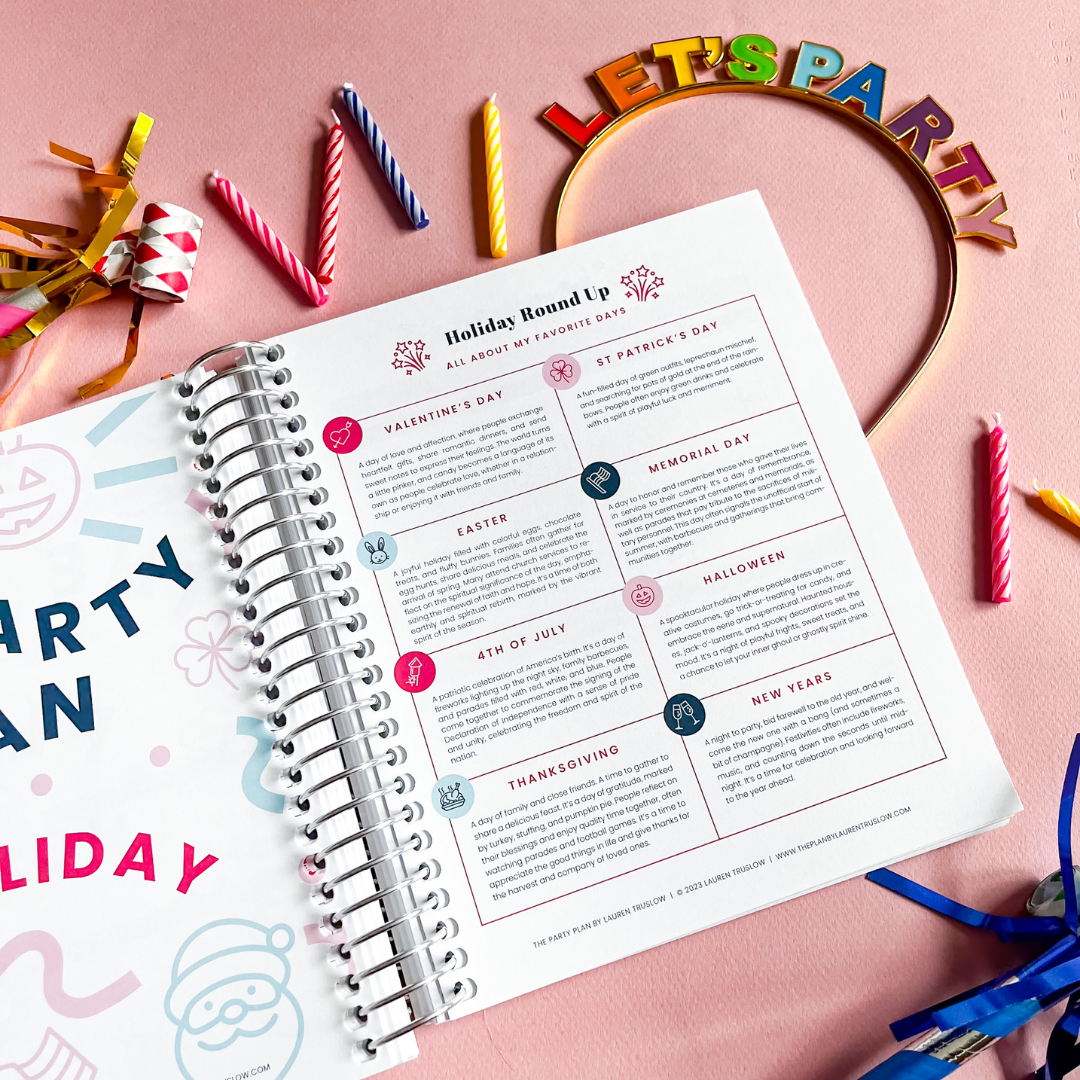 LET'S PARTY
Holiday Round Up
ALL ABOUT MY FAVORITE DAYS
VALENTINE'S DAY
A day of love and affection, where people exchange
heartfelt gifts, share romantic dinners, and send
sweet notes to express their feelings. The world turns
a little pinker, and candy becomes a language of its
own as people celebrate love, whether in a relation-
ship or enjoying it with friends and family.
ST PATRICK'S DAY
A fun-filled day of green outfits, leprechaun mischief,
and searching for pots of gold at the end of the rain-
bows. People often enjoy green drinks and celebrate
with a spirit of playful luck and merriment.
EASTER
A joyful holiday filled with colorful eggs, chocolate
treats, and fluffy bunnies. Families often gather for
egg hunts, share delicious meals, and celebrate the
arrival of spring. Many attend church services to re-
flect on the spiritual significance of the day, empha-
sizing the renewal of faith and hope. It's a time of both
earthly and spiritual rebirth, marked by the vibrant
spirit of the season.
MEMORIAL DAY
A day to honor and remember those who gave their lives
in service to their country. It's a day of remembrance,
marked by ceremonies at cemeteries and memorials, as
well as parades that pay tribute to the sacrifices of mili-
tary personnel. This day often signals the unofficial start of
summer, with barbecues and gatherings that bring com-
munities together.
4TH OF JULY
A patriotic celebration of America's birth. It's a day of
fireworks lighting up the night sky, family barbecues,
and parades filled with red, white, and blue. People
come together to commemorate the signing of the
Declaration of Independence with a sense of pride
and unity, celebrating the freedom and spirit of the
nation.
HALLOWEEN
A spooktacular holiday where people dress up in cre-
ative costumes, go trick-or-treating for candy, and
embrace the eerie and supernatural. Haunted hous-
es, jack-o'-lanterns, and spooky decorations set the
mood. It's a night of playful frights, sweet treats, and
a chance to let your inner ghoul or ghostly spirit shine.
THANKSGIVING
A day of family and close friends. A time to gather to
share a delicious feast. It's a day of gratitude, marked
by turkey, stuffing, and pumpkin pie. People reflect on
their blessings and enjoy quality time together, often
watching parades and football games. It's a time to
appreciate the good things in life and give thanks for
the harvest and company of loved ones.
NEW YEARS
A night to party, bid farewell to the old year, and wel-
come the new one with a bang (and sometimes a
bit of champagne). Festivities often include fireworks,
music, and counting down the seconds until mid-
night. It's a time for celebration and looking forward
to the year ahead.
THE PARTY PLAN BY LAUREN TRUSLOW | © 2023 LAUREN TRUSLOW | WWW.THEPLANBYLAURENTRUSLOW.COM
ARTY
AN
OLIDAY
USLOW.COM